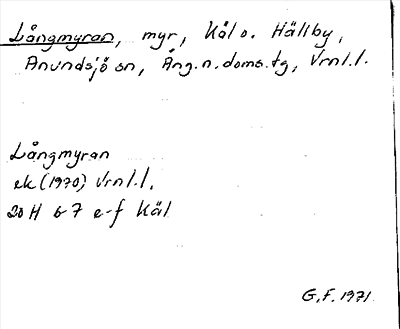 Långmyran, myr, Kål o. Hällby,
Anundsjö sn, Ång.n.doms.tg, Vrnl.l.
Långmyran
ek (1970) Vrnl.l.
20 H 6-7 e-f Käl
G.F. 1971.